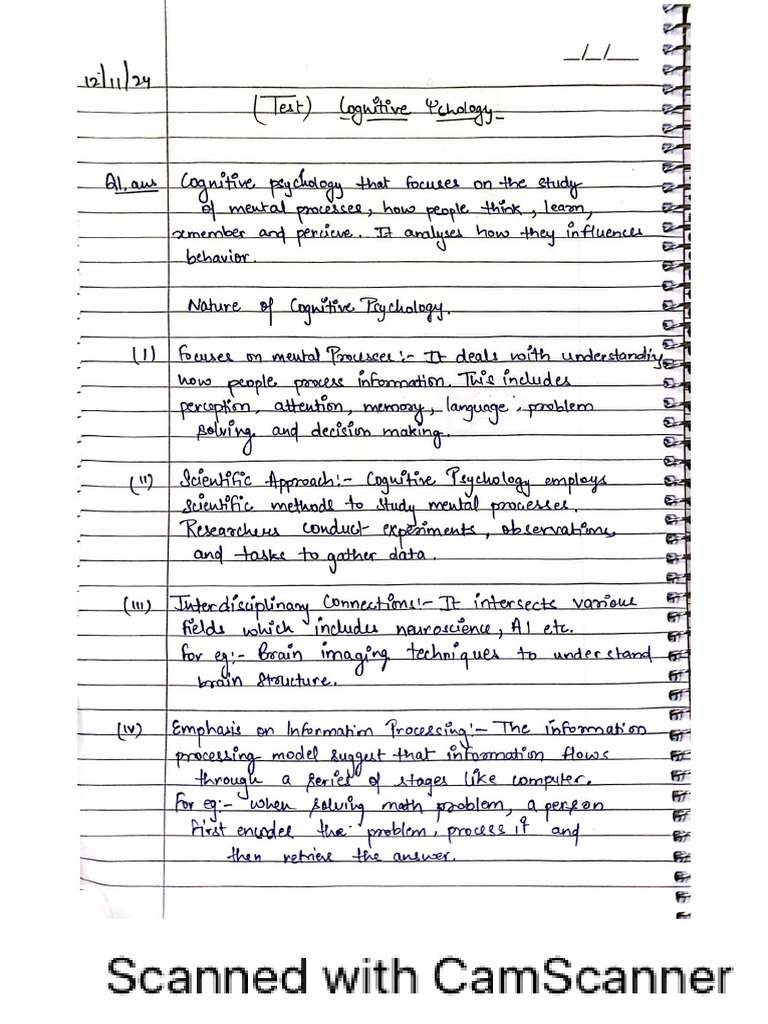 _/_/__
12/11/24
(Test) Cognitive Ψchology
Q1. ans Cognitive psychology that focuses on the study
of mental processes, how people think, learn,
remember and percieve. It analyses how they influences
behavior.
Nature of Cognitive Psychology.
(I) Focuses on mental Processes:- It deals with understanding
how people process information. This includes
perception, attention, memory, language, problem
solving and decision making.
(II) Scientific Approach:- Cognitive Psychology employs
scientific methods to study mental processes.
Researchers conduct experiments, observations,
and tasks to gather data.
(III) Interdisciplinary Connections:- It intersects various
fields which includes neuroscience, AI etc.
For eg:- Brain imaging techniques to understand
brain structure.
(IV) Emphasis on Information Processing:- The information
processing model suggest that information flows
through a series of stages like computer.
For eg:- when solving math problem, a person
first encodes the problem, process it and
then retrieve the answer.
Scanned with CamScanner